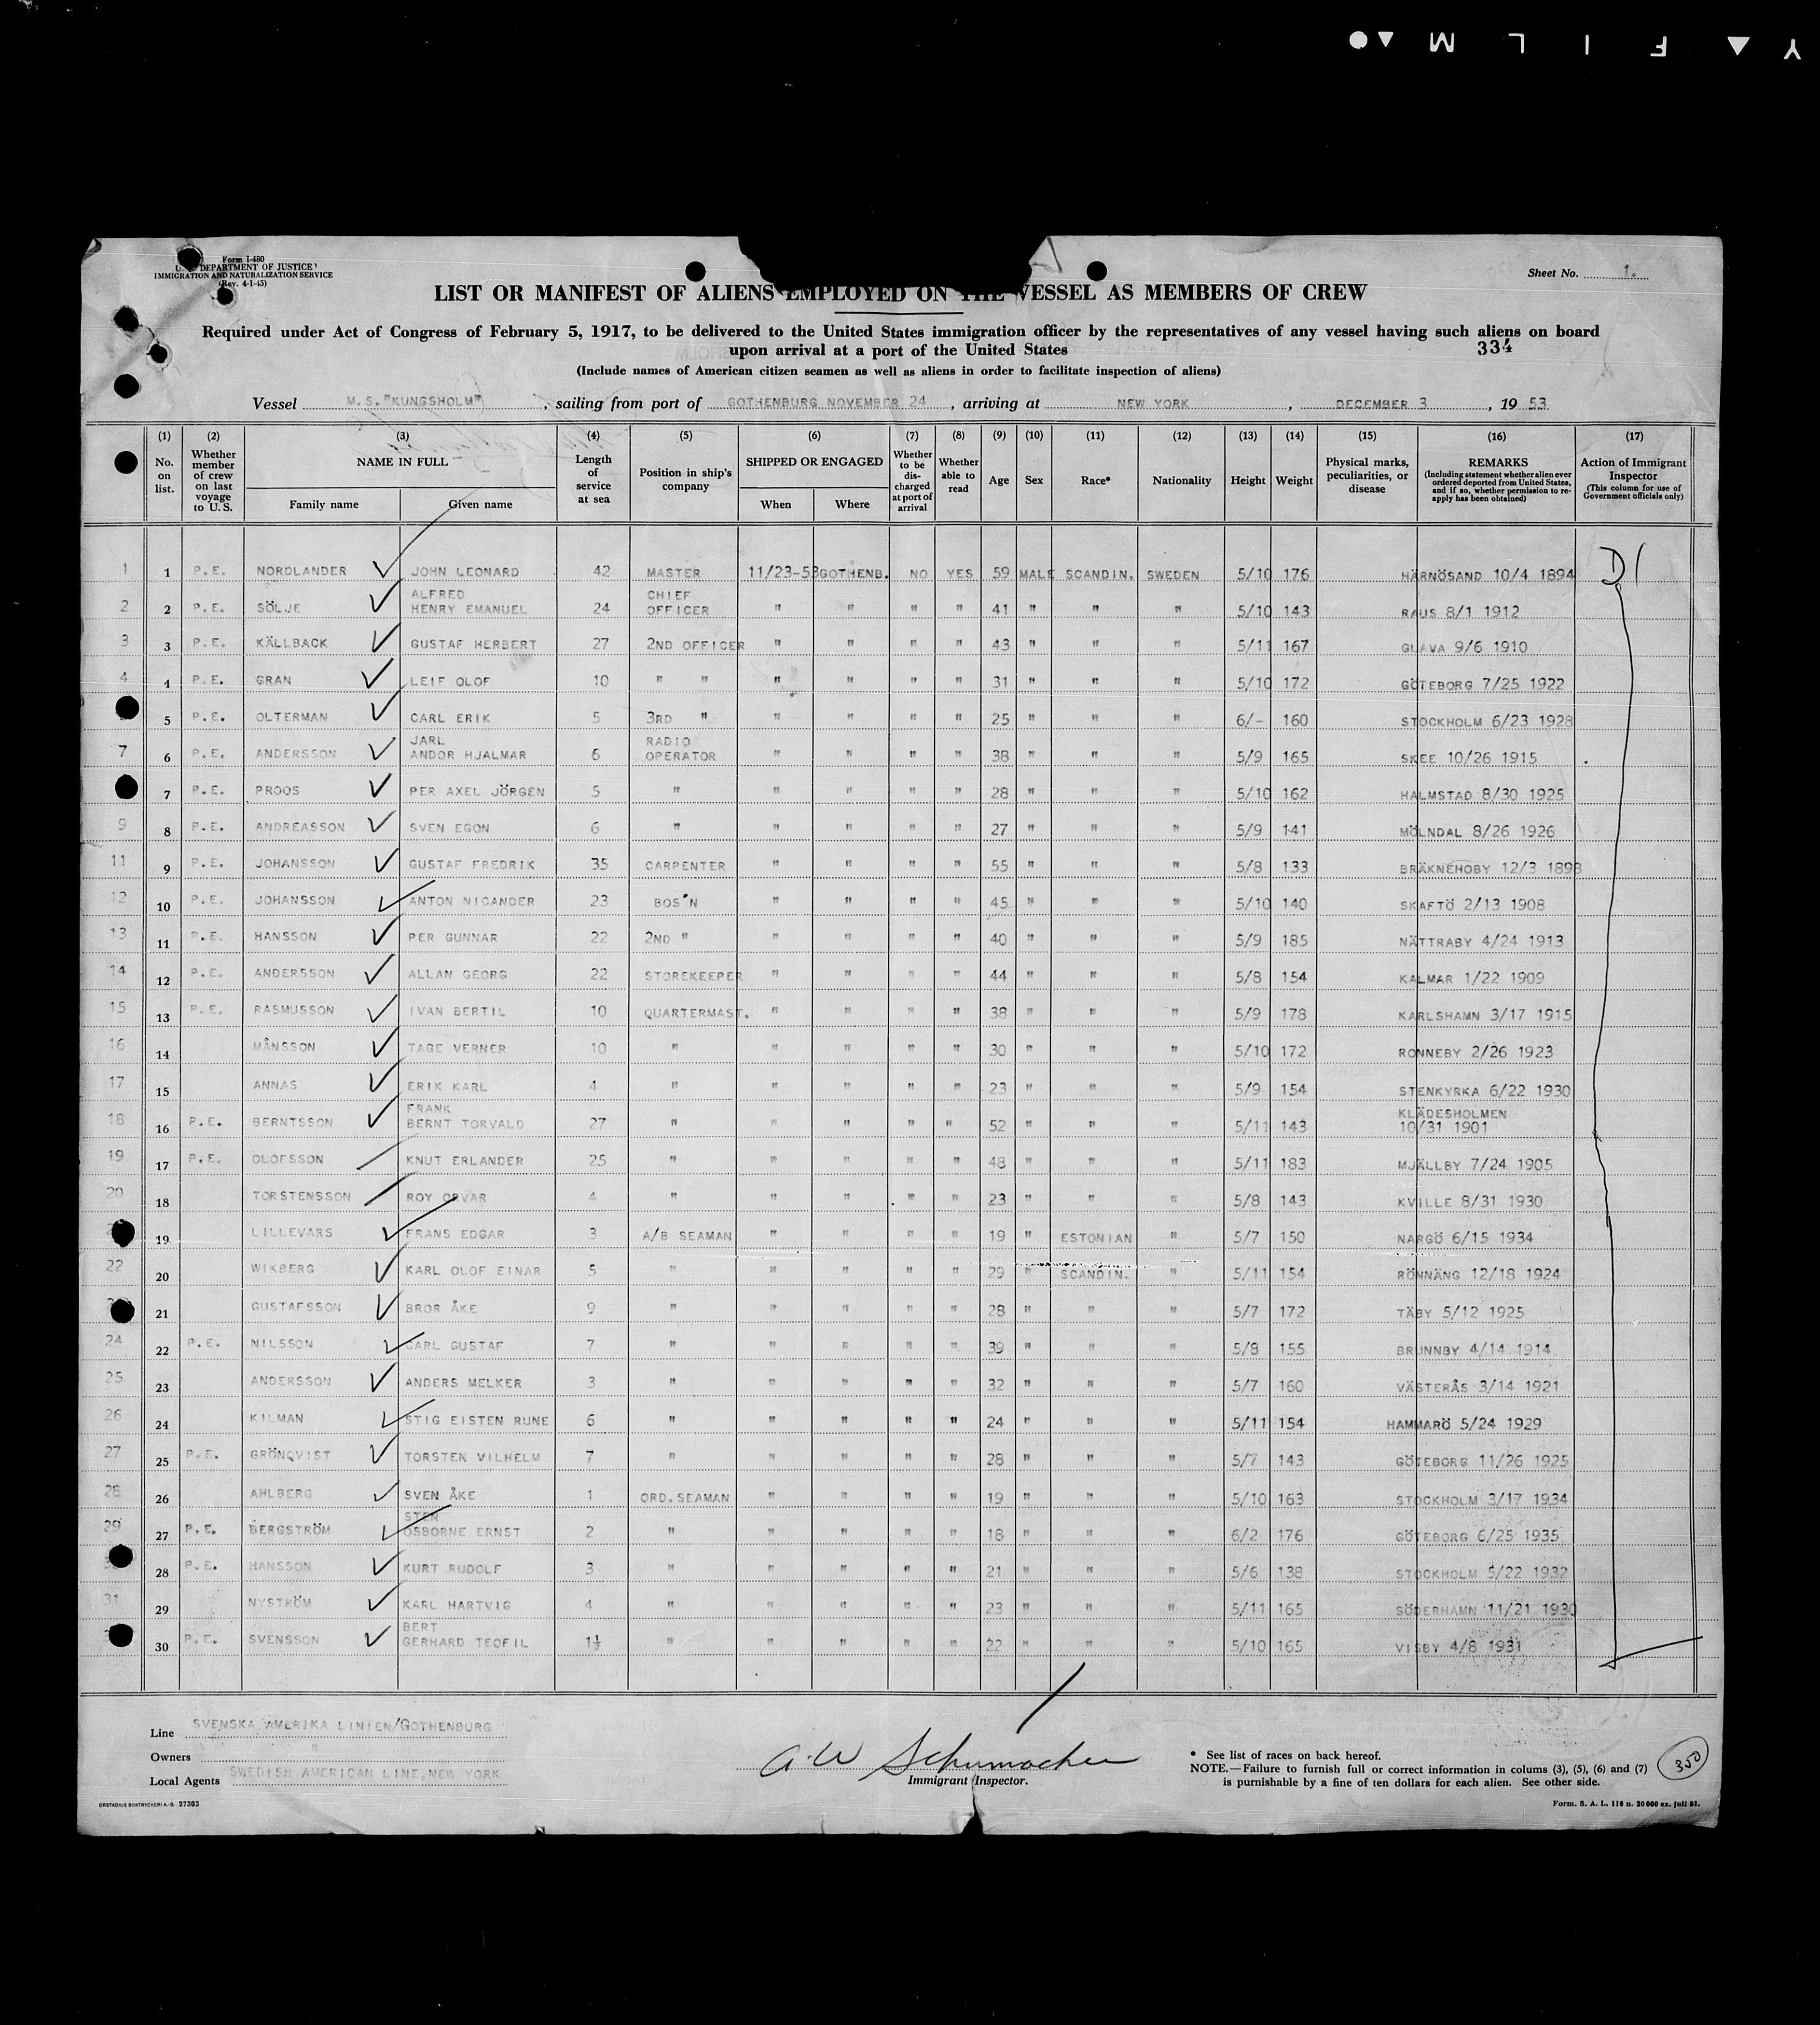 Y F I L M
Form I-480
U. S. DEPARTMENT OF JUSTICE
IMMIGRATION AND NATURALIZATION SERVICE
(Rev. 4-1-45)
Sheet No. 1.
LIST OR MANIFEST OF ALIENS EMPLOYED ON THE VESSEL AS MEMBERS OF CREW
Required under Act of Congress of February 5, 1917, to be delivered to the United States immigration officer by the representatives of any vessel having such aliens on board
upon arrival at a port of the United States
334
(Include names of American citizen seamen as well as aliens in order to facilitate inspection of aliens)
Vessel M.S."KUNGSHOLM", sailing from port of GOTHENBURG NOVEMBER 24, arriving at NEW YORK, DECEMBER 3, 19 53
(1) No. on list. (2) Whether member of crew on last voyage to U. S. (3) NAME IN FULL Family name Given name (4) Length of service at sea (5) Position in ship's company (6) SHIPPED OR ENGAGED When Where (7) Whether to be discharged at port of arrival (8) Whether able to read (9) Age (10) Sex (11) Race* (12) Nationality (13) Height (14) Weight (15) Physical marks, peculiarities, or disease (16) REMARKS (Including statement whether alien ever ordered deported from United States, and if so, whether permission to reapply has been obtained) (17) Action of Immigrant Inspector (This column for use of Government officials only)
1 1 P.E. NORDLANDER JOHN LEONARD 42 MASTER 11/23-53 GOTHENB. NO YES 59 MALE SCANDIN. SWEDEN 5/10 176 HÄRNÖSAND 10/4 1894 D1
2 2 P.E. SÖLJE ALFRED HENRY EMANUEL 24 CHIEF OFFICER " " " " 41 " " " 5/10 143 RAUS 8/1 1912
3 3 P.E. KÄLLBACK GUSTAF HERBERT 27 2ND OFFICER " " " " 43 " " " 5/11 167 GLAVA 9/6 1910
4 4 P.E. GRAN LEIF OLOF 10 " " " " " " 31 " " " 5/10 172 GÖTEBORG 7/25 1922
5 P.E. OLTERMAN CARL ERIK 5 3RD " " " " " 25 " " " 6/- 160 STOCKHOLM 6/23 1928
7 6 P.E. ANDERSSON JARL ANDOR HJALMAR 6 RADIO OPERATOR " " " " 38 " " " 5/9 165 SKEE 10/26 1915
7 P.E. PROOS PER AXEL JÖRGEN 5 " " " " " 28 " " " 5/10 162 HALMSTAD 8/30 1925
9 8 P.E. ANDREASSON SVEN EGON 6 " " " " " 27 " " " 5/9 141 MÖLNDAL 8/26 1926
11 9 P.E. JOHANSSON GUSTAF FREDRIK 35 CARPENTER " " " " 55 " " " 5/8 133 BRÄKNEHOBY 12/3 1898
12 10 P.E. JOHANSSON ANTON NICANDER 23 BOS'N " " " " 45 " " " 5/10 140 SKAFTÖ 2/13 1908
13 11 P.E. HANSSON PER GUNNAR 22 2ND " " " " " 40 " " " 5/9 185 NÄTTRABY 4/24 1913
14 12 P.E. ANDERSSON ALLAN GEORG 22 STOREKEEPER " " " " 44 " " " 5/8 154 KALMAR 1/22 1909
15 13 P.E. RASMUSSON IVAN BERTIL 10 QUARTERMAST. " " " " 38 " " " 5/9 178 KARLSHAMN 3/17 1915
16 14 MÅNSSON TAGE VERNER 10 " " " " " 30 " " " 5/10 172 RONNEBY 2/26 1923
17 15 ANNAS ERIK KARL 4 " " " " " 23 " " " 5/9 154 STENKYRKA 6/22 1930
18 16 P.E. BERNTSSON FRANK BERNT TORVALD 27 " " " " " 52 " " " 5/11 143 KLÄDESHOLMEN 10/31 1901
19 17 P.E. OLOFSSON KNUT ERLANDER 25 " " " " " 48 " " " 5/11 183 MJÄLLBY 7/24 1905
20 18 TORSTENSSON ROY ORVAR 4 " " " " " 23 " " " 5/8 143 KVILLE 8/31 1930
19 LILLEVARS FRANS EDGAR 3 A/B SEAMAN " " " " 19 " ESTONIAN " 5/7 150 NARGÖ 6/15 1934
22 20 WIKBERG KARL OLOF EINAR 5 " " " " " 29 " SCANDIN. " 5/11 154 RÖNNÄNG 12/18 1924
21 GUSTAFSSON BROR ÅKE 9 " " " " " 28 " " " 5/7 172 TÄBY 5/12 1925
24 22 P.E. NILSSON CARL GUSTAF 7 " " " " " 39 " " " 5/8 155 BRUNNBY 4/14 1914
25 23 ANDERSSON ANDERS MELKER 3 " " " " " 32 " " " 5/7 160 VÄSTERÅS 3/14 1921
26 24 KILMAN STIG EISTEN RUNE 6 " " " " " 24 " " " 5/11 154 HAMMARÖ 5/24 1929
27 25 P.E. GRÖNQVIST TORSTEN VILHELM 7 " " " " " 28 " " " 5/7 143 GÖTEBORG 11/26 1925
28 26 AHLBERG SVEN ÅKE 1 ORD.SEAMAN " " " " 19 " " " 5/10 163 STOCKHOLM 3/17 1934
29 27 P.E. BERGSTRÖM STEN OSBORNE ERNST 2 " " " " " 18 " " " 6/2 176 GÖTEBORG 6/25 1935
28 P.E. HANSSON KURT RUDOLF 3 " " " " " 21 " " " 5/6 138 STOCKHOLM 5/22 1932
31 29 NYSTRÖM KARL HARTVIG 4 " " " " " 23 " " " 5/11 165 SÖDERHAMN 11/21 1930
30 P.E. SVENSSON BERT GERHARD TEOFIL 1½ " " " " " 22 " " " 5/10 165 VISBY 4/8 1931
Line SVENSKA AMERIKA LINIEN/GOTHENBURG
Owners "
Local Agents SWEDISH AMERICAN LINE, NEW YORK
A. W Schumacher
Immigrant Inspector.
* See list of races on back hereof.
NOTE.—Failure to furnish full or correct information in colums (3), (5), (6) and (7)
is punishable by a fine of ten dollars for each alien. See other side.
350
ORSTADIUS BOKTRYCKERI A.-B. 27303
Form. S. A. L. 116 n. 20 000 ex. juli 51.